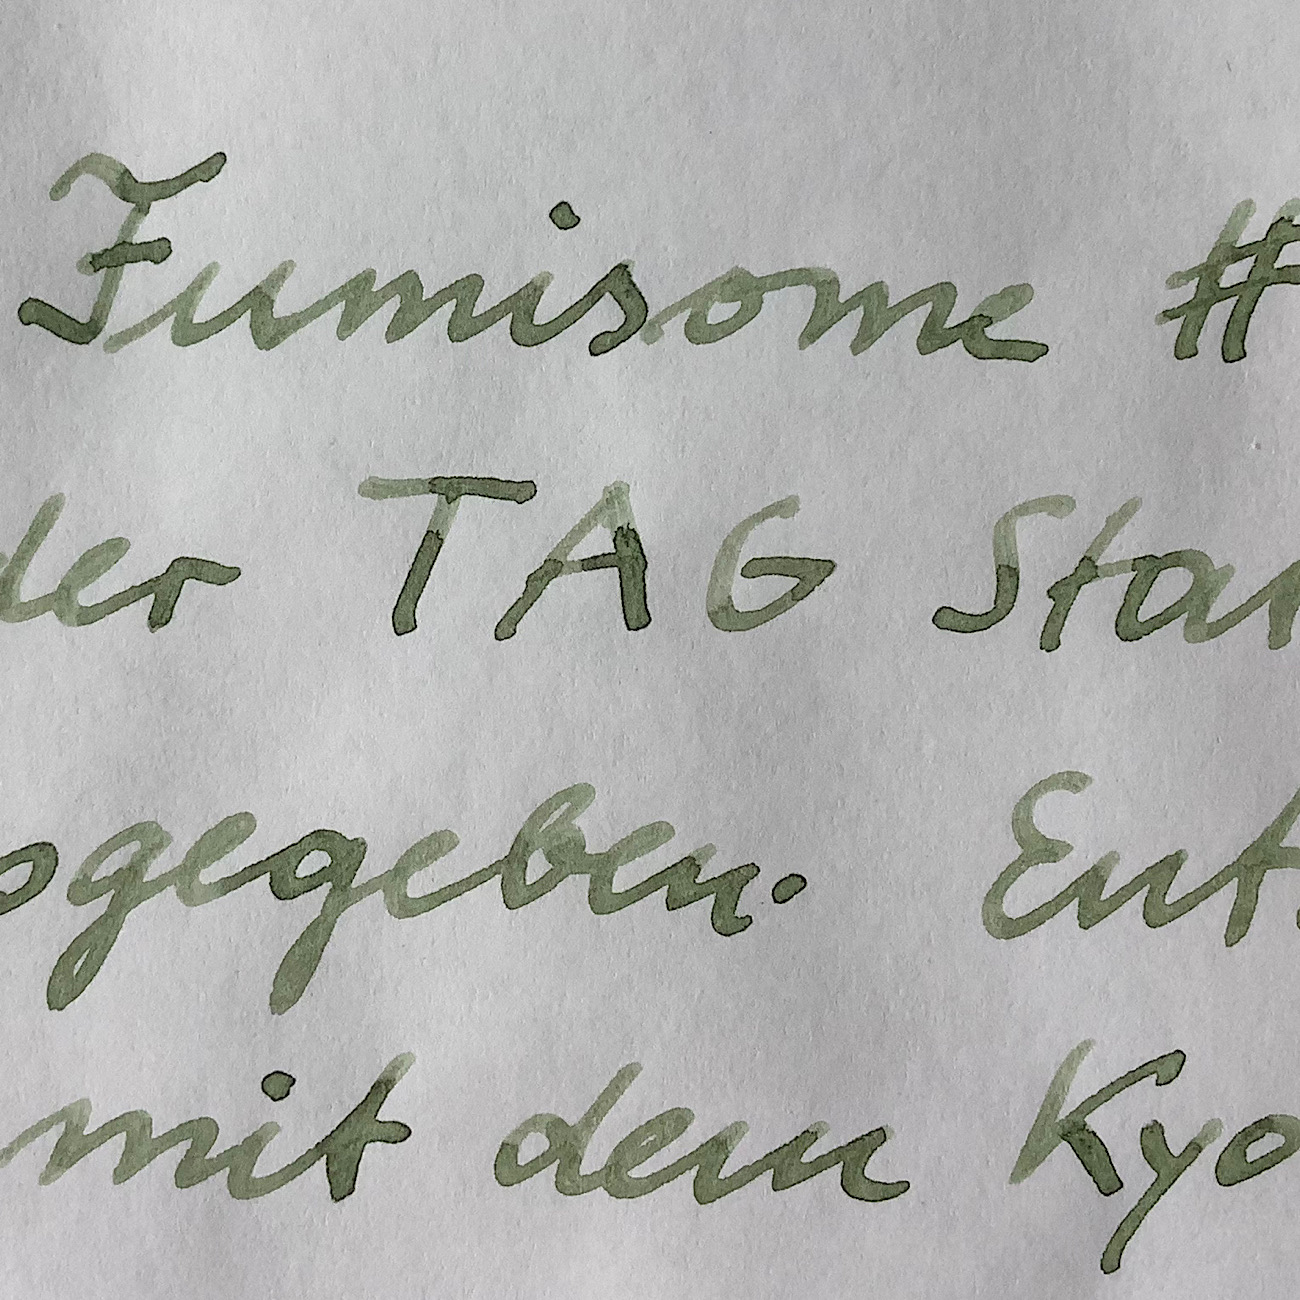 Fumisome #
der TAG Star
sgegeben. Ents
mit dem Kyo